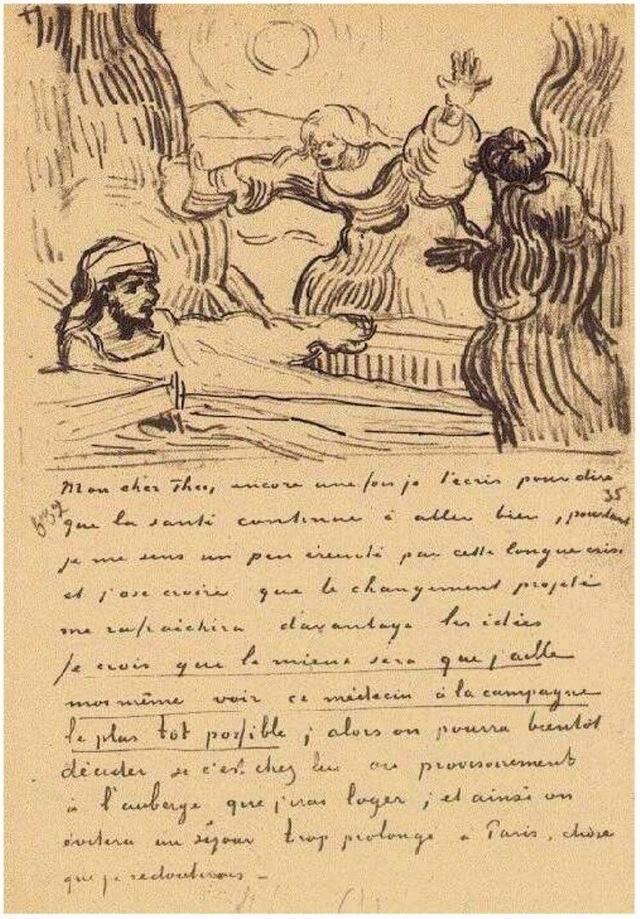 Mon cher Theo, encore une fois je t'écris pour dire
que la santé continue à aller bien, pourtant
je me sens un peu éreinté par cette longue crise
et j'ose croire que le changement projeté
me rafraichira davantage les idées
Je crois que le mieux sera que j'aille
moi même voir ce médecin à la campagne
le plus tôt possible ; alors on pourra bientôt
décider si c'est chez lui ou provisoirement
à l'auberge que j'irai loger ; et ainsi on
évitera un séjour trop prolongé à Paris, chose
que je redouterais -